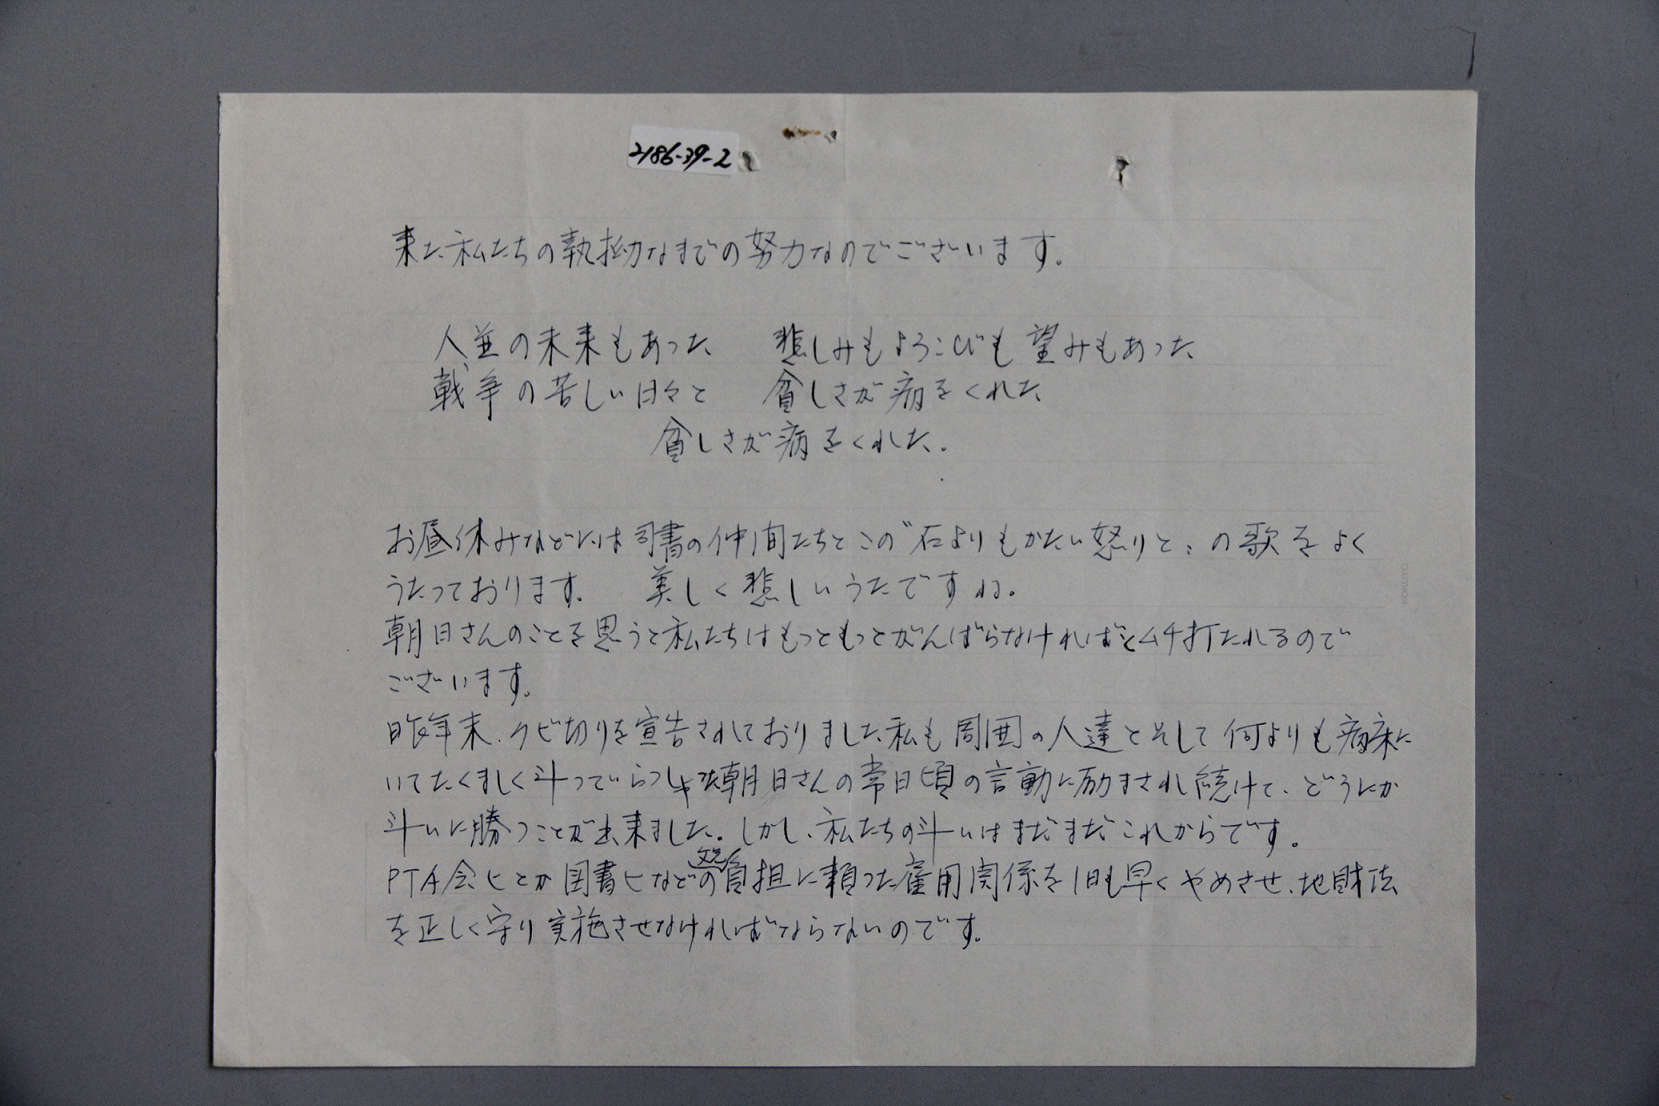 2186-39-2
来た私たちの執拗なまでの努力なのでございます。
人並の未来もあった 悲しみもよろこびも望みもあった
戦争の苦しい日々と 貧しさが病をくれた
貧しさが病をくれた。
お昼休みなどには司書の仲間たちとこの"石よりもかたい怒りと〟の歌をよく
うたっております。 美しく悲しいうたですね。
朝日さんのことを思うと私たちはもっともっとがんばらなければとムチ打たれるので
ございます。
昨年末、クビ切りを宣告されておりました私も周囲の人達とそして何よりも病床に
いてたくましく斗っていらっしゃる朝日さんの常日頃の言動に励まされ続けて、どうにか
斗いに勝つことが出来ました。しかし、私たちの斗いはまだまだこれからです。
PTA会ヒとか図書ヒなどの父兄負担に頼った雇用関係を1日も早くやめさせ、地財法
を正しく守り実施させなければならないのです。
KOKUYO